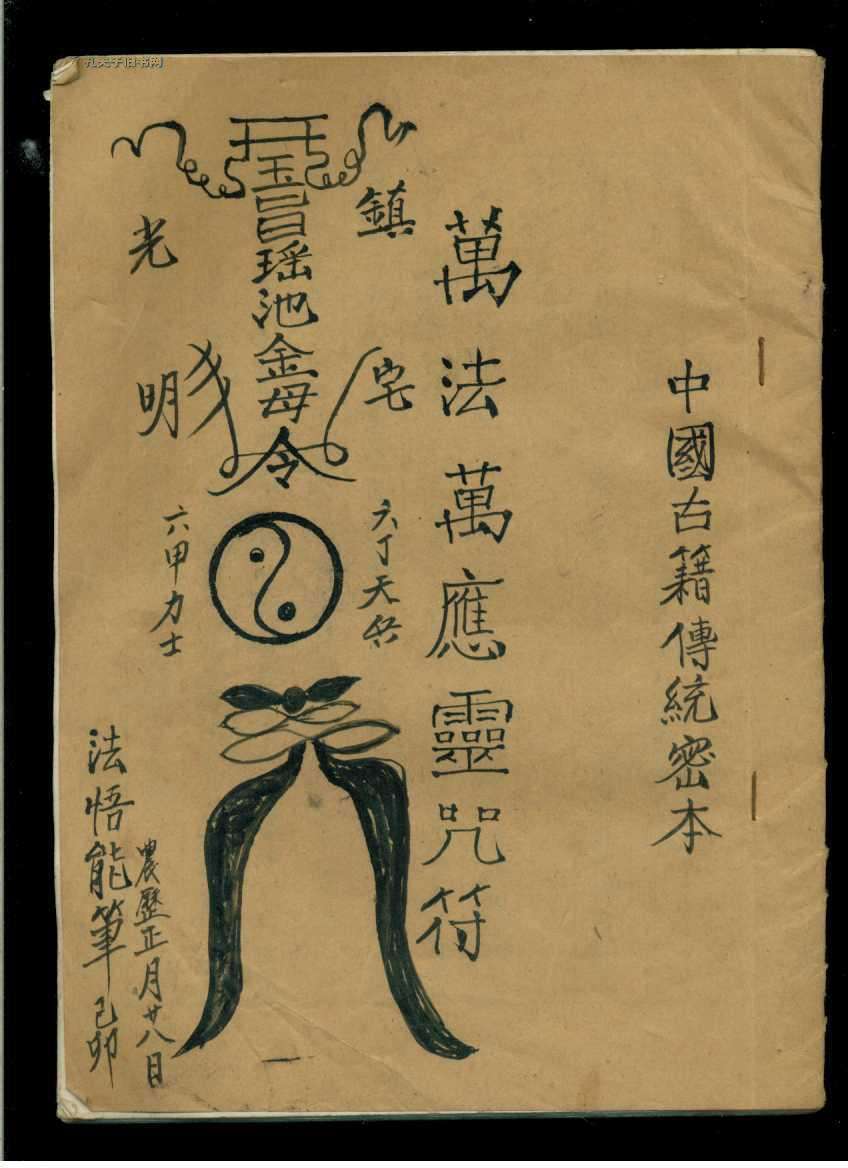 孔夫子旧书网
中國古籍傳統密本
萬法萬應靈咒符
鎮宅
六丁天兵
玉旨瑶池金母令
光明
六甲力士
農歷正月廿八日
法悟能筆己卯